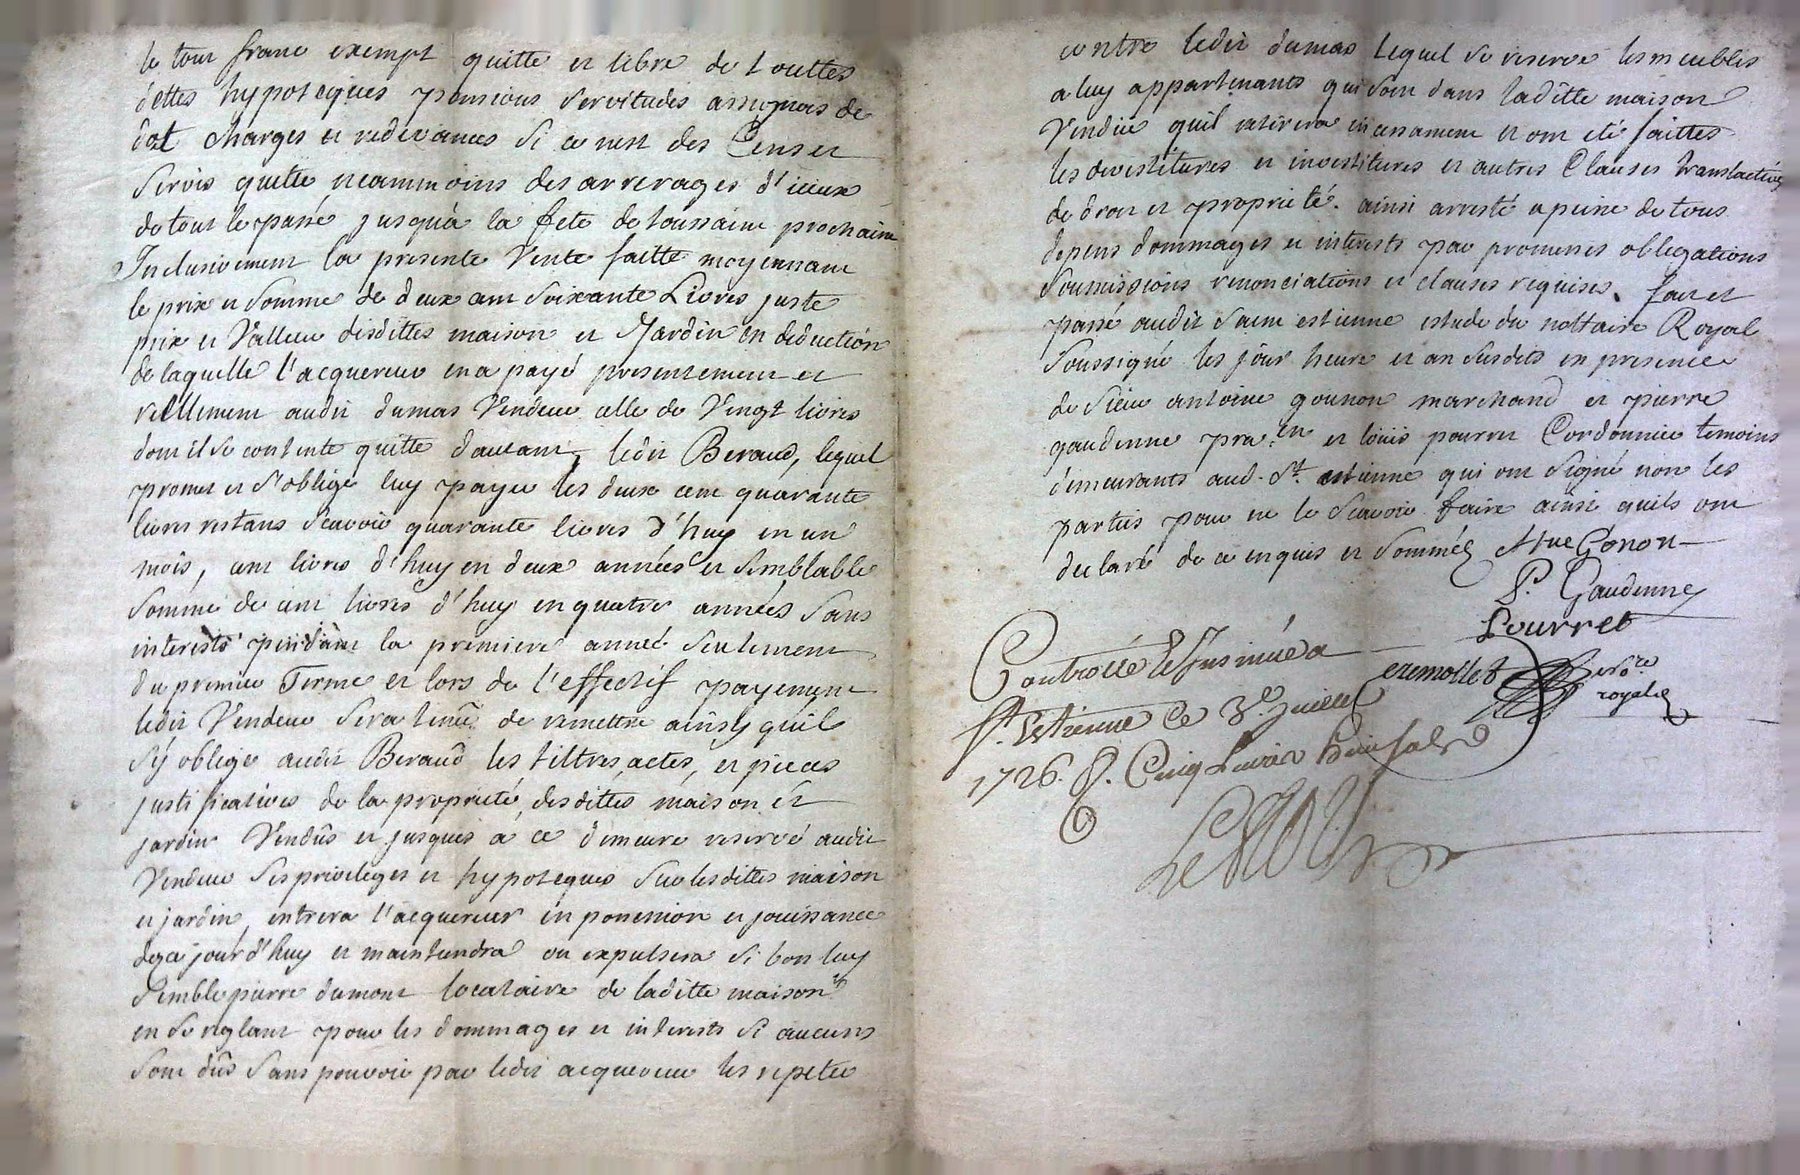 le tout franc exempt quitte et libre de touttes
dettes hypoteques pensions servitudes assignas de
dot charges et redevances si ce nest des Cens et
servis quitte neammoins des arrerages d'iceux
de tout le passé jusqu'a la fete de toussaint prochaine
Inclusivement la presente Vente faitte moyennant
le prix et somme de deux cent soixante Livres juste
prix et Valleur desdittes maison et Jardin en deduction
de laquelle l'acquereur en a payé presentement et
reellement audit dumas Vendeur celle de Vingt livres
dont il se contente quitte d'autant ledit Beraud, lequel
promet et s'oblige luy payer les deux cent quarante
livres restans scavoir quarante livres d'huy en un
mois, cent livres d'huy en deux années et semblable
somme de cent livres d'huy en quatre années sans
interests pendant la premiere année seulement
du premier Terme et lors de l'effectif payement
ledit Vendeur sera tenu de remettre ainsy quil
s'y oblige audit Beraud les tiltres, actes, et pieces
justificatives de la propriété desdittes maison et
jardin Vendus et jusques a ce demeure reservé audit
Vendeur ses privileges et hypoteques sur lesdittes maison
et jardin, entrera l'acquereur en possession et jouissance
deça jourd'huy et maintiendra ou expulsera si bon luy
semble pierre dumont locataire de laditte maison
en se reglant pour les dommages et interests si aucuns
sont dûs sans pouvoir par ledit acquereur les repeter
contre ledit dumas Lequel se reserve les meubles
a luy appartenants qui sont dans laditte maison
Vendue quil retirera incessament et ont été faittes
les devestitures et investitures et autres Clauses translactives
de droit et propriété. ainsi arresté a peine de tous
depens dommages et interests par promesses obligations
soumissions renonciations et clauses requises. fait et
passé audit saint estienne estude du nottaire Royal
soussigné les jour heure et an susdits en presence
de sieur antoine gounon marchand et pierre
gaudenne pra.en et louis pourret Cordonnier temoins
demeurants aud. St. estienne qui ont signé non les
parties pour ne le scavoir faire ainsi quils ont
declaré de ce enquis et sommés Atne Gonon
P. Gaudenne
Lourret
Controllé et Insinué a
cremollet
no.re
royal
St. Estienne ce 3e. Juillet
1726. R. Cinq Livres huit sols